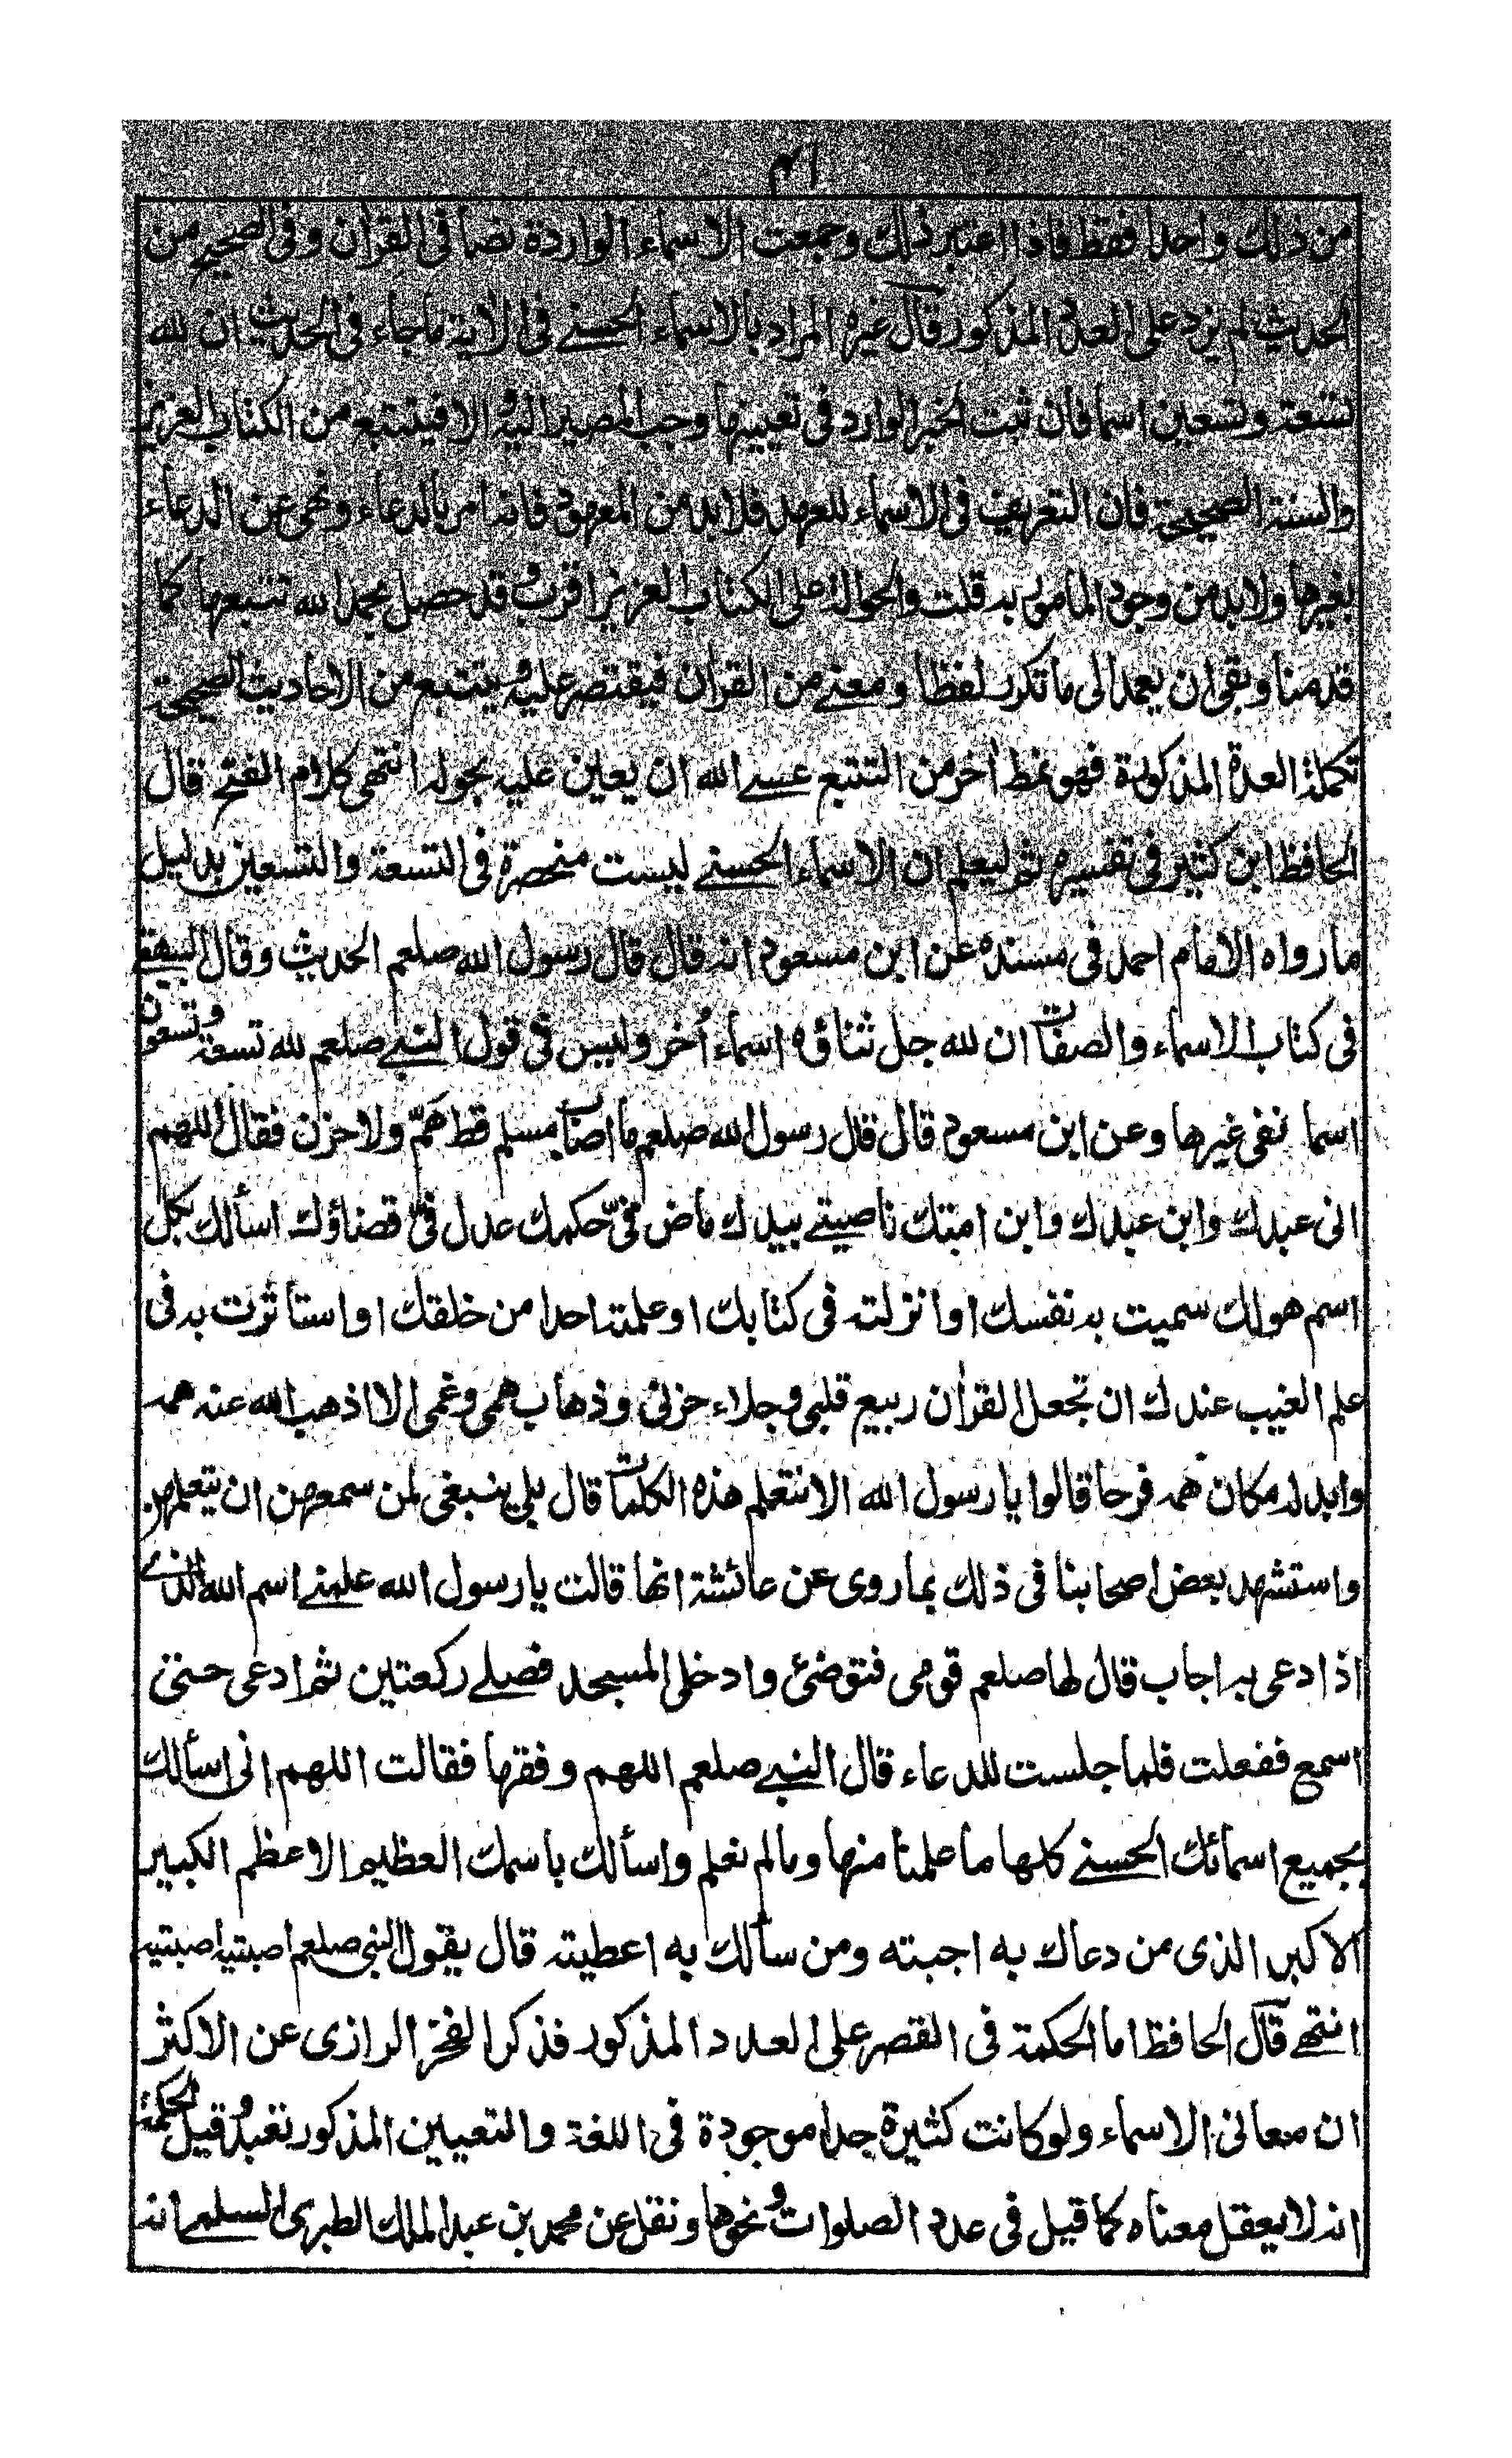 ٤١
من ذلك واحدا فقط فاذا اعتبر ذلك وجمعت الاسماء الواردة نصا فى القرآن وفى الصحيح من
الحديث لم يزد على العدد المذكور قال غيره المراد بالاسماء الحسنے فى الآية ما جاء فى الحديث ان لله
تسعة وتسعين اسما فان ثبت الخبر الوارد فى تعيينها وجب المصير اليه والا فيتتبع من الكتاب العزيز
والسنة الصحيحة فان التعريف فى الاسماء للعهد فلا بد من المعهود فانه امر بالدعاء ونهى عن الدعاء
بغيرها ولا بد من وجود المأمور به قلت والحوالة على الكتاب العزيز اقرب وقد حصل بحمد الله تتبعها كما
قدمنا وبقى ان يعمد الى ما تكرر لفظا ومعنے من القرآن فيقتصر عليه ويتتبع من الاحاديث الصحيحة
تكملة العدة المذكورة فهو نمط آخر من التتبع عسے الله ان يعين عليه بحوله انتهى كلام الفتح قال
الحافظ ابن كثير فى تفسيره ثم ليعلم ان الاسماء الحسنے ليست منحصرة فى التسعة والتسعين بدليل
ما رواه الامام احمد فى مسنده عن ابن مسعود انه قال قال رسول الله صلعم الحديث وقال البيهقے
فى كتاب الاسماء والصفات ان لله جل ثناؤه اسماء أخر وليس فى قول النبے صلعم لله تسعة وتسعون
اسما نفى غيرها وعن ابن مسعود قال قال رسول الله صلعم ما اصاب مسلم قط هَمّ ولا حزن فقال اللهم
انى عبدك وابن عبدك وابن امتك ناصيتے بيدك ماض فىّ حكمك عدل فىّ قضاؤك اسألك بكل
اسم هو لك سميت به نفسك او انزلته فى كتابك او علمته احدا من خلقك او استأثرت به فى
علم الغيب عندك ان تجعل القرآن ربيع قلبى وجلاء حزنى وذهاب همى وغمى الا اذهب الله عنه همه
وابدله مكان همه فرحا قالوا يا رسول الله الا نتعلم هذه الكلمات قال بلى ينبغى لمن سمعهن ان يتعلمهن
واستشهد بعض اصحابنا فى ذلك بما روى عن عائشة انها قالت يا رسول الله علمنے اسم الله الذے
اذا دعى به اجاب قال لها صلعم قومى فتوضئ وادخلى المسجد فصلے ركعتين ثم ادعى حتى
اسمع ففعلت فلما جلست للدعاء قال النبے صلعم اللهم وفقها فقالت اللهم انى اسألك
بجميع اسمائك الحسنے كلها ما علمنا منها وما لم نعلم واسألك باسمك العظيم الاعظم الكبير
الاكبر الذى من دعاك به اجبته ومن سألك به اعطيته قال يقول النبى صلعم اصبتيه اصبتيه
انتهے قال الحافظ اما الحكمة فى القصر على العدد المذكور فذكر الفخر الرازى عن الاكثر
ان معانى الاسماء ولو كانت كثيرة جدا موجودة فى اللغة والتعيين المذكور تعبد وقيل الحكمة
انه لا يعقل معناه كما قيل فى عدد الصلوات ونحوها ونقل عن محمد بن عبد الملك الطبرى السلمے انه